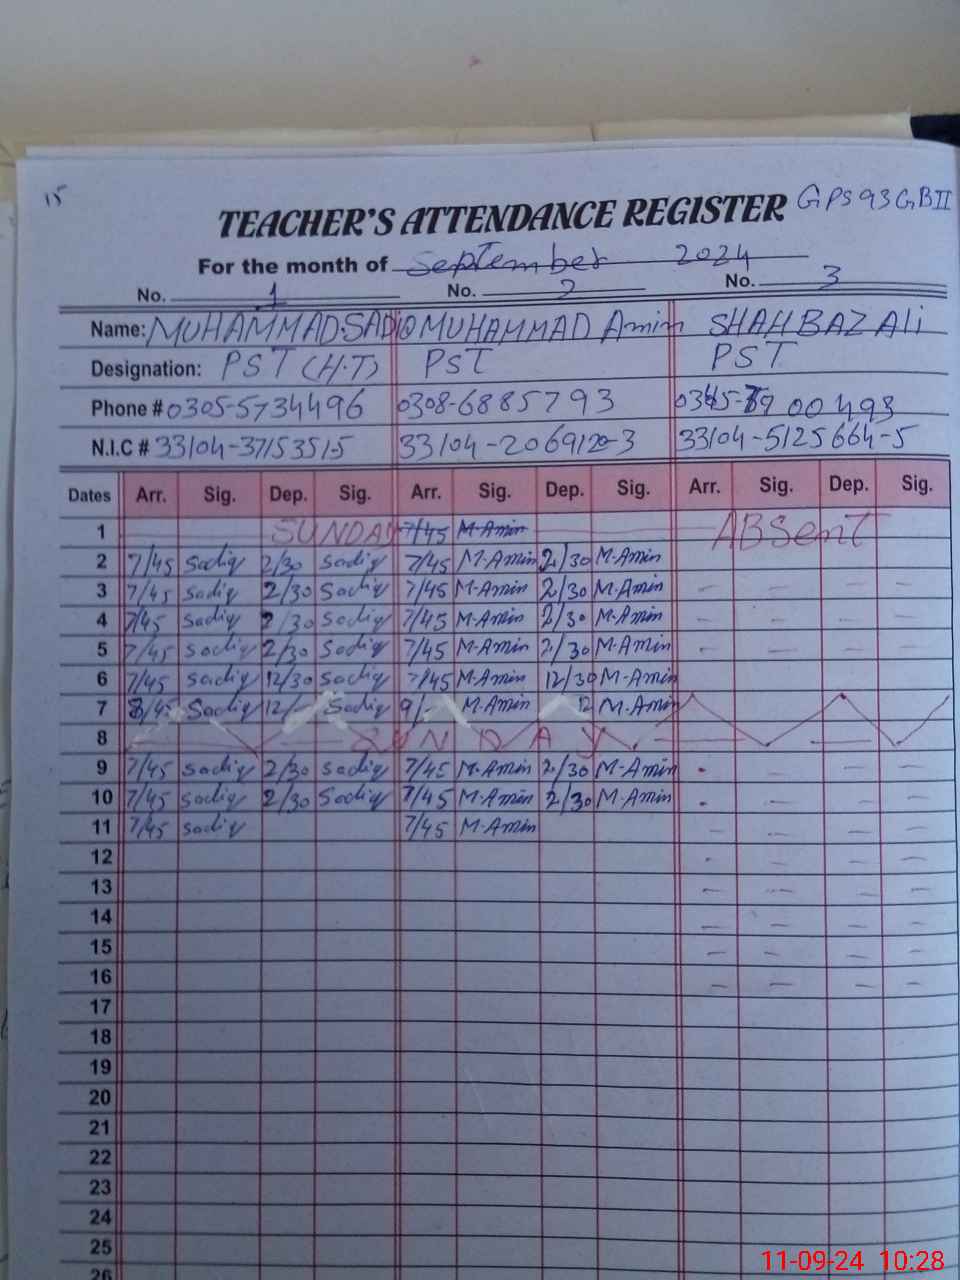 15
GPS 93 GB II
TEACHER'S ATTENDANCE REGISTER
For the month of September 2024
No. 1 No. 2 No. 3
Name: MUHAMMAD SADIQ MUHAMMAD Amin SHAHBAZ Ali
Designation: PST (H.T) PST PST
Phone # 0305-5734496 0308-6885793
N.I.C # 33104-3715351-5 33104-2069120-3 33104-5125664-5
Dates Arr. Sig. Dep. Sig. Arr. Sig. Dep. Sig. Arr. Sig. Dep. Sig.
1 SUNDAY 7/45 M.Amin ABSenT
2 7/45 Sadiq 2/30 Sadiq 7/45 M.Amin 2/30 M.Amin
3 7/45 Sadiq 2/30 Sadiq 7/45 M.Amin 2/30 M.Amin - - - -
4 7/45 Sadiq 2/30 Sadiq 7/45 M.Amin 2/30 M.Amin - - - -
5 7/45 Sadiq 2/30 Sadiq 7/45 M.Amin 2/30 M.Amin - - - -
6 7/45 Sadiq 12/30 Sadiq 7/45 M.Amin 12/30 M.Amin
7 8/45 Sadiq 12/- Sadiq 9/- M.Amin 12 M.Amin
8 SUNDAY
9 7/45 Sadiq 2/30 Sadiq 7/45 M.Amin 2/30 M.Amin - - - -
10 7/45 Sadiq 2/30 Sadiq 7/45 M.Amin 2/30 M.Amin - - - -
11 7/45 Sadiq 7/45 M.Amin - - - -
12 - - - -
13 - - - -
14 - - - -
15 - - - -
16 - - - -
17
18
19
20
21
22
23
24
25
26
11-09-24 10:28